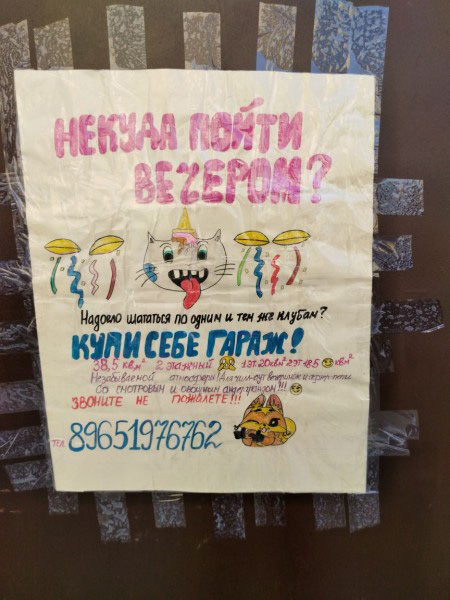 НЕКУДА ПОЙТИ
ВЕЧЕРОМ?
Надоело шататься по одним и тем же клубам?
КУПИ СЕБЕ ГАРАЖ!
38,5 кв м² 2 этажный 1 эт. 20 кв м² 2 эт. 18,5 кв м²
Незабываемой атмосферы!
Со смотровым и овощным андеграундом!!!
ЗВОНИТЕ НЕ ПОЖАЛЕТЕ!!!
ТЕЛ. 89651976762